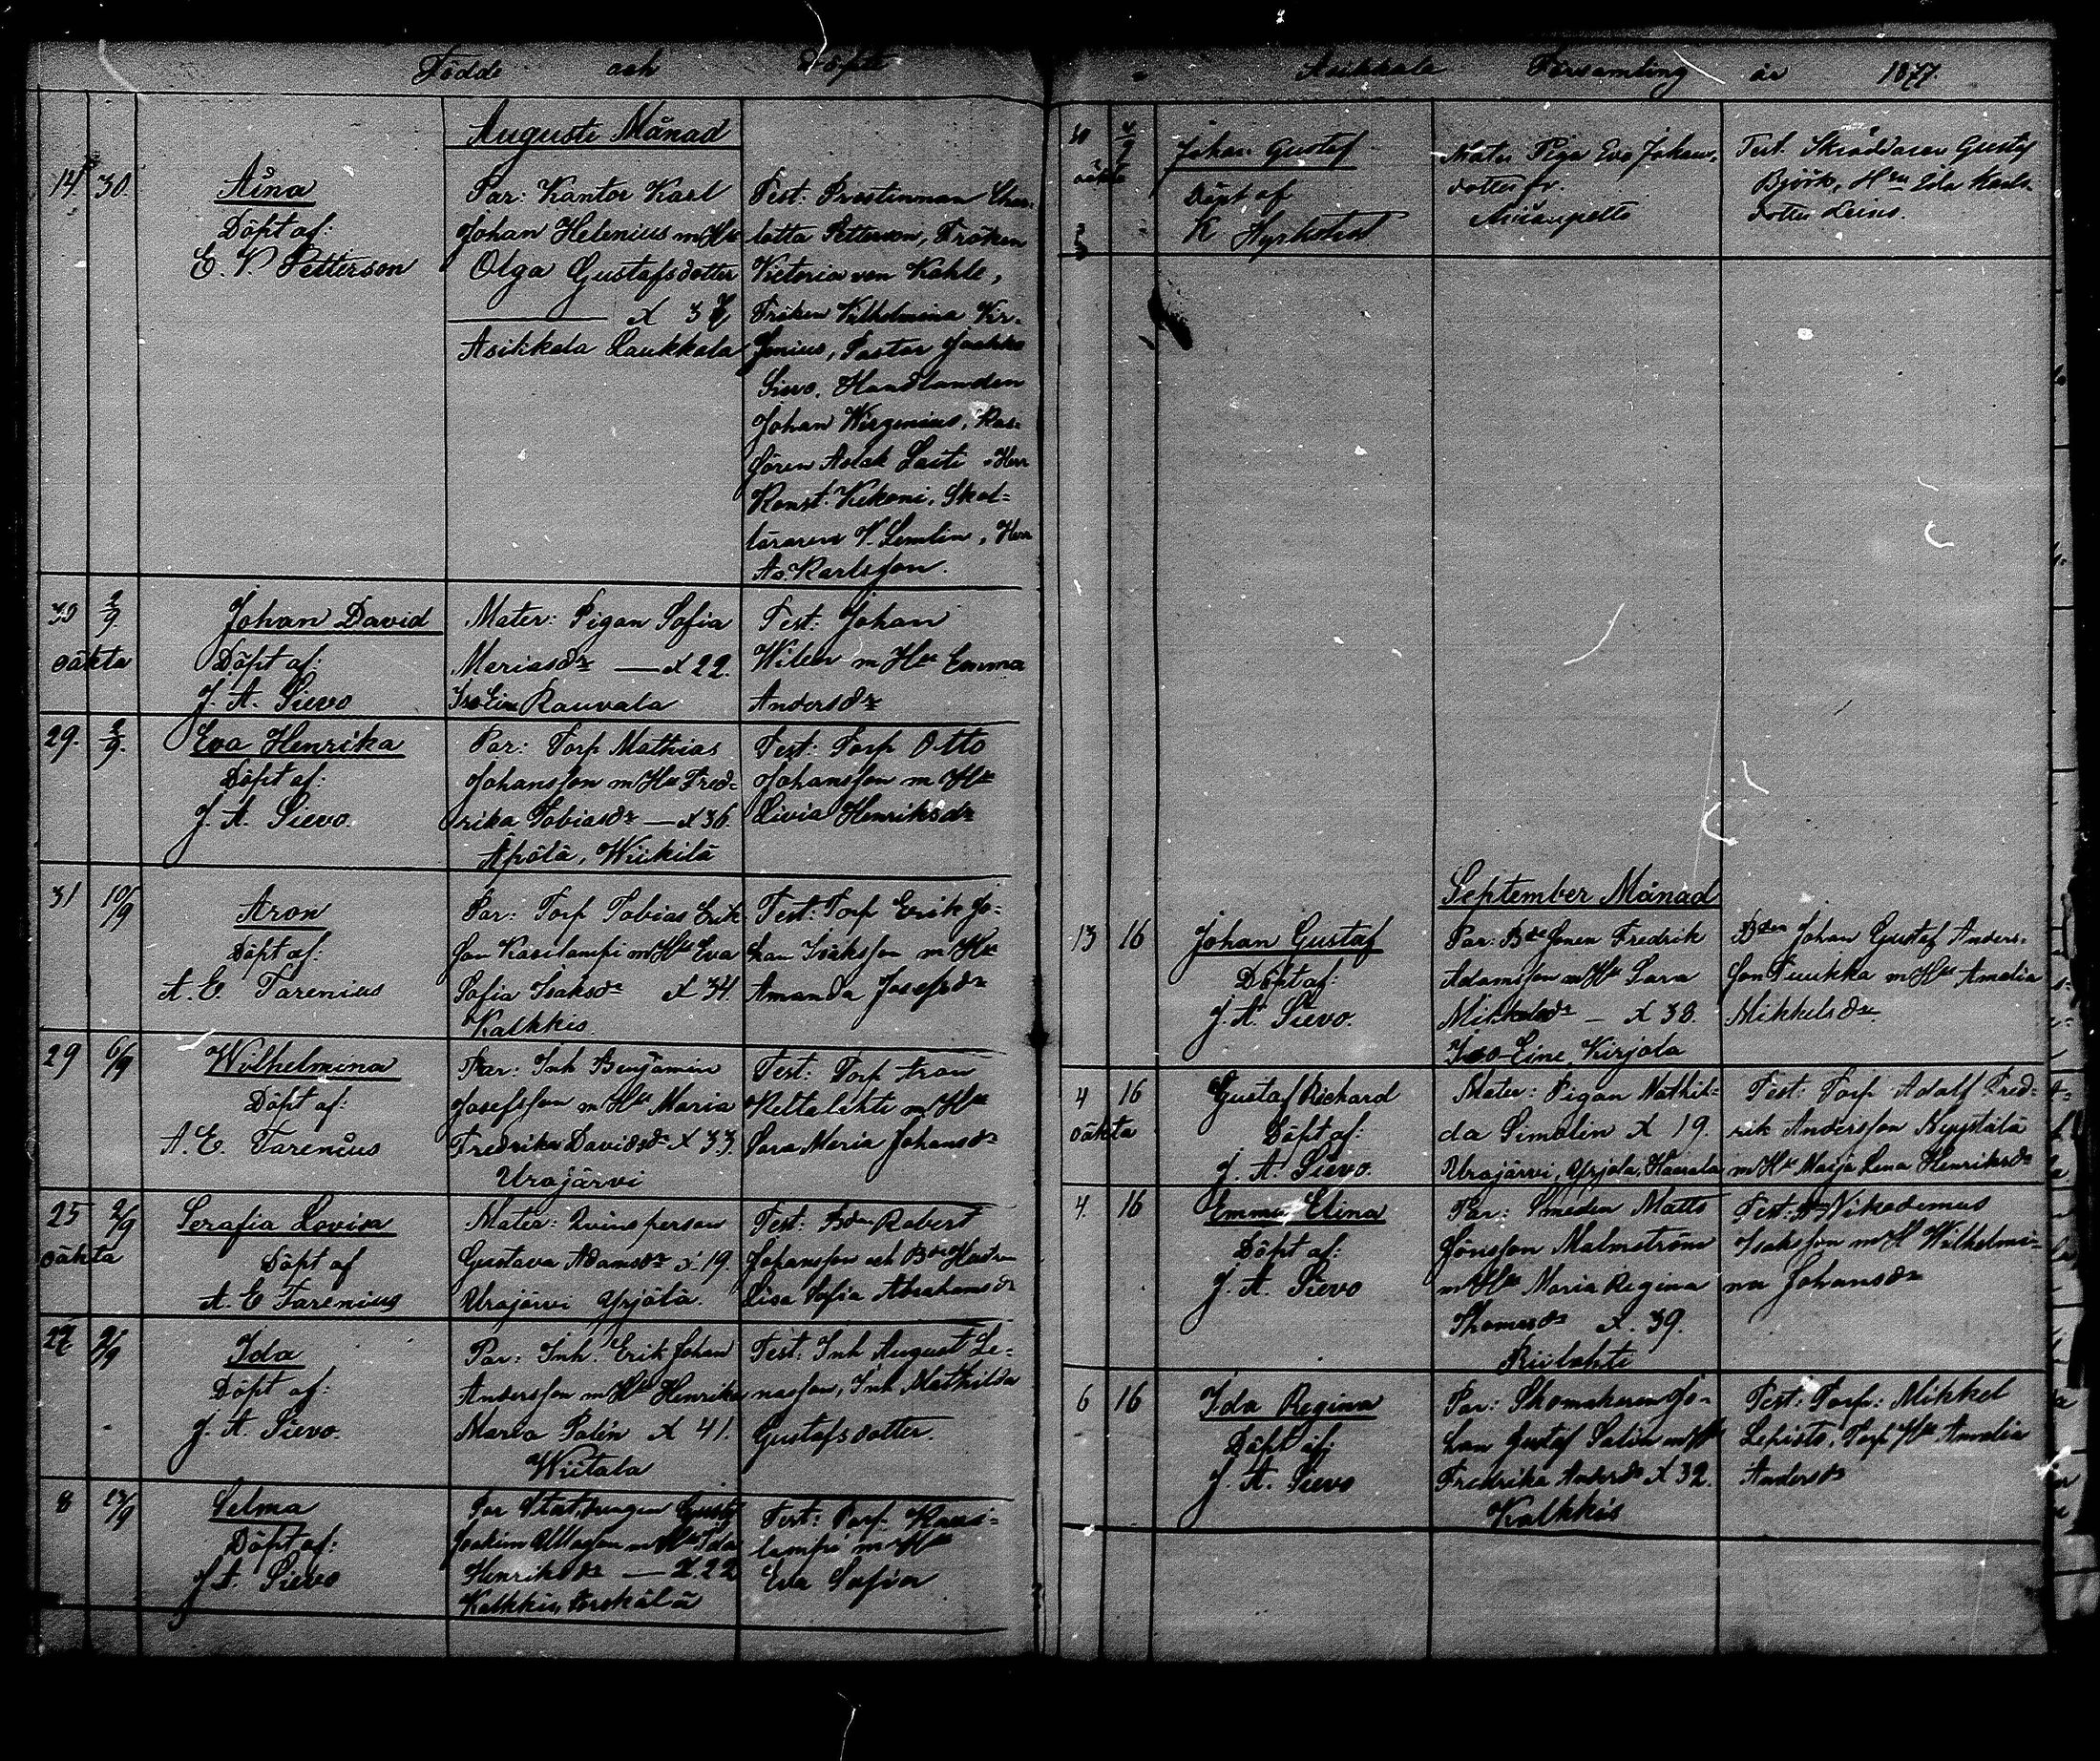 Födde och Döpte
Augusti Månad
14 30. Aina
Döpt af:
E. V. Petterson
Par: Kantor Karl
Johan Helenius m Hu
Olga Gustafsdotter
Asikkala Laukkala
Test: Prostinnan Char-
lotta Petterson, Fröken
Victoria von Kahle,
Fröken Vilhelmina Vir-
genius, Pastor Jaakko
Sievo, Handlanden
Johan Wirgenius,
Herr
Konst. Kekoni, Skol-
läraren V. Lemlin, Herr
Ad. Karlsson.
30 2/9 Johan David
oäkta Döpt af:
J. A. Sievo
Mater: Pigan Sofia
Mariasdr — x 22.
Iso Eine Rauvala
Test: Johan
Wilen m Hu Emma
Andersdr
29. 2/9. Eva Henrika
Döpt af:
J. A. Sievo.
Par: Torp Mathias
Johansson m Hu Fred-
rika Tobiasdr — x 36.
Äpölä, Wiikilä
Test: Torp Otto
Johansson m Hu
Livia Henriksdr
31 10/9 Aron
Döpt af:
A. E. Tarenius
Par: Torp Tobias Erik-
son Kasilampi m Hu Eva
Sofia Isaksdr x 34.
Kalkkis.
Test: Torp Erik Jo-
han Isaksson m Hu
Amanda Josefsdr
29 6/9 Wilhelmina
Döpt af:
A. E. Tarenius
Par: Inh Benjamin
Josefsson m Hu Maria
Fredrika Davidsdr x 33.
Urajärvi
Test: Torp Aron
Keltalahti m Hu
Sara Maria Johansdr
25 2/9 Serafia Lovisa
oäkta Döpt af
A. E Tarenius
Mater: Qvinsperson
Gustava Adamsdr x 19.
Urajärvi Yrjölä.
Test: Bdn Robert
Johansson och
Lisa Sofia Abrahamsdr
27 9/9 Ida
Döpt af:
J. A. Sievo.
Par: Inh. Erik Johan
Andersson m Hu Henrika
Maria Palin x 41.
Wiitala
Test: Inh August Le-
nasson, Inh Mathilda
Gustafsdotter.
8 Selma
Döpt af:
J A. Sievo
Par Statdrengen Gustaf
Joakim m Hu Ida
Henriksdr — x 22
Kalkkis,
Test: Torp. Kasi-
lampi m Hu
Eva Sofia
i Asikkala Församling år 1877.
30 Johan Gustaf
oäkta Döpt af
K
Mater Piga Eva Johans-
dotter fr.
Test. Skräddaren Gustaf
Björk, Hru Ida Karls-
dotter Leino.
September Månad
13 16 Johan Gustaf
Döpt af:
J. A. Sievo.
Par: Bdesonen Fredrik
Adamsson m Hu Sara
Mikkelsdr — x 38.
Iso-Eine, Kirjola
Bden Johan Gustaf Anders-
son Puukka m Hu Amalia
Mikkelsdr.
4 16 Gustaf Richard
oäkta Döpt af:
J. A. Sievo.
Mater: Pigan Mathil-
da Simolin x 19.
Urajärvi, Yrjola,
Test: Torp Adolf Fred-
rik Andersson
m Hu Maija Lena Henriksdr
4. 16 Emma Elina
Döpt af:
J. A. Sievo
Par: Smeden Matts
Jönsson Malmström
m Hu Maria Regina
Thomasdr x. 39.
Riilahti
Test: Nikodemus
Isaksson m H Wilhelmi-
na Johansdr
6 16 Ida Regina
Döpt af:
J. A. Sievo
Par: Skomakeren Jo-
han Gustaf Salin m Hu
Fredrika Andersdr x 32.
Kalkkis
Test: Torp: Mikkel
Lepistö, Torp Hu Amalia
Andersdr